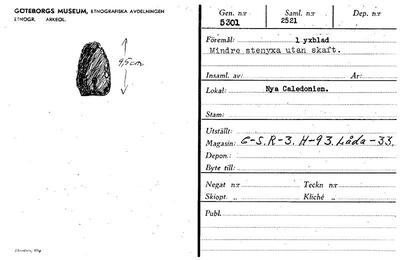 GÖTEBORGS MUSEUM, ETNOGRAFISKA AVDELNINGEN
ETNOGR. ARKEOL.
9,5 cm
Gen. n:r Saml. n:r Dep. n:r
5301 2521
Föremål: 1 yxblad
Mindre stenyxa utan skaft.
Insaml. av: År:
Lokal: Nya Caledonien.
Stam:
Utställt:
Magasin: G-5. R-3. H-93. Låda-33.
Depon.:
Byte till:
Negat n:r Teckn n:r
Skiopt. „ Kliché „
Publ.